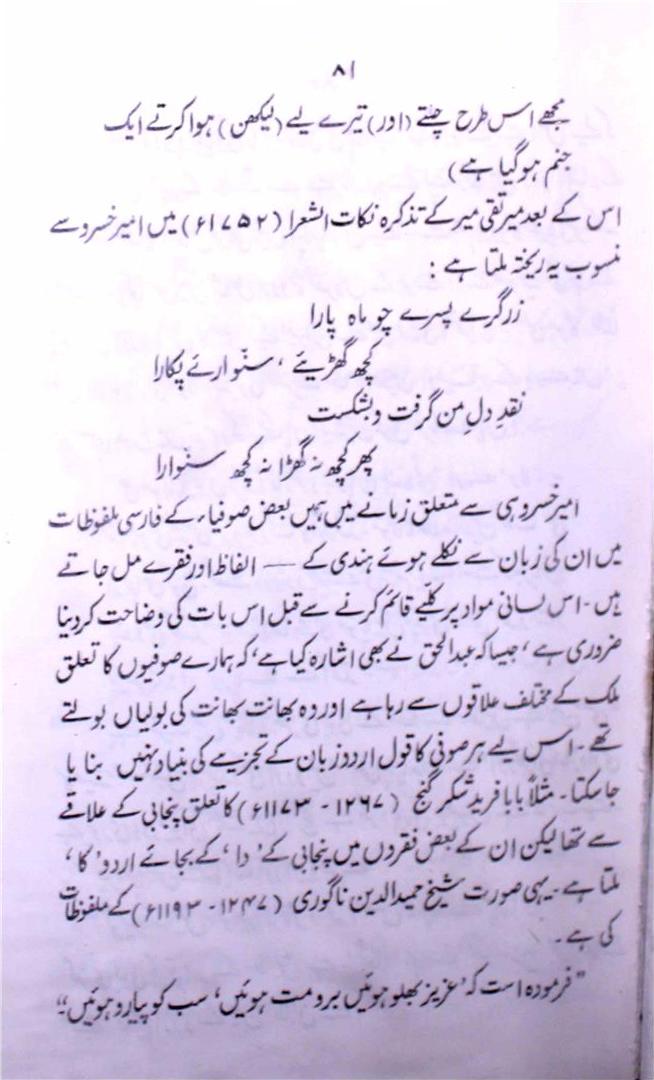 ۸۱
مجھے اس طرح چلتے (اور) تیرے لیے (لیکھن) ہوا کرتے ایک
جنم ہوگیا ہے)
اس کے بعد میر تقی میر کے تذکرہ نکات الشعرا (۱۷۵۲ء) میں امیر خسرو سے
منسوب یہ ریختہ ملتا ہے :
زرگرے پسرے چو ماہ پارا
کچھ گھڑیئے ، سنوارئے پکارا
نقدِ دلِ من گرفت و بشکست
پھر کچھ نہ گھڑا نہ کچھ سنوارا
امیر خسرو ہی سے متعلق زمانے میں ہمیں بعض صوفیاء کے فارسی ملفوظات
میں ان کی زبان سے نکلے ہوئے ہندی کے — الفاظ اور فقرے مل جاتے
ہیں۔ اس لسانی مواد پر کلیے قائم کرنے سے قبل اس بات کی وضاحت کر دینا
ضروری ہے ، جیسا کہ عبدالحق نے بھی اشارہ کیا ہے ، کہ ہمارے صوفیوں کا تعلق
ملک کے مختلف علاقوں سے رہا ہے اور وہ بھانت بھانت کی بولیاں بولتے
تھے۔ اس لیے ہر صوفی کا قول اردو زبان کے تجزیے کی بنیاد نہیں بنایا
جاسکتا۔ مثلاً بابا فرید شکر گنج (۱۲۶۷ - ۱۱۷۳ء) کا تعلق پنجابی کے علاقے
سے تھا لیکن ان کے بعض فقروں میں پنجابی کے ’دا‘ کے بجائے اردو ’کا‘
ملتا ہے۔ یہی صورت شیخ حمید الدین ناگوری (۱۲۴۷ - ۱۱۹۳ء) کے ملفوظات
کی ہے۔
”فرمودہ است کہ ’عزیز بھلو ہوئیں برومت ہوئیں‘ سب کو پیارو ہوئیں“